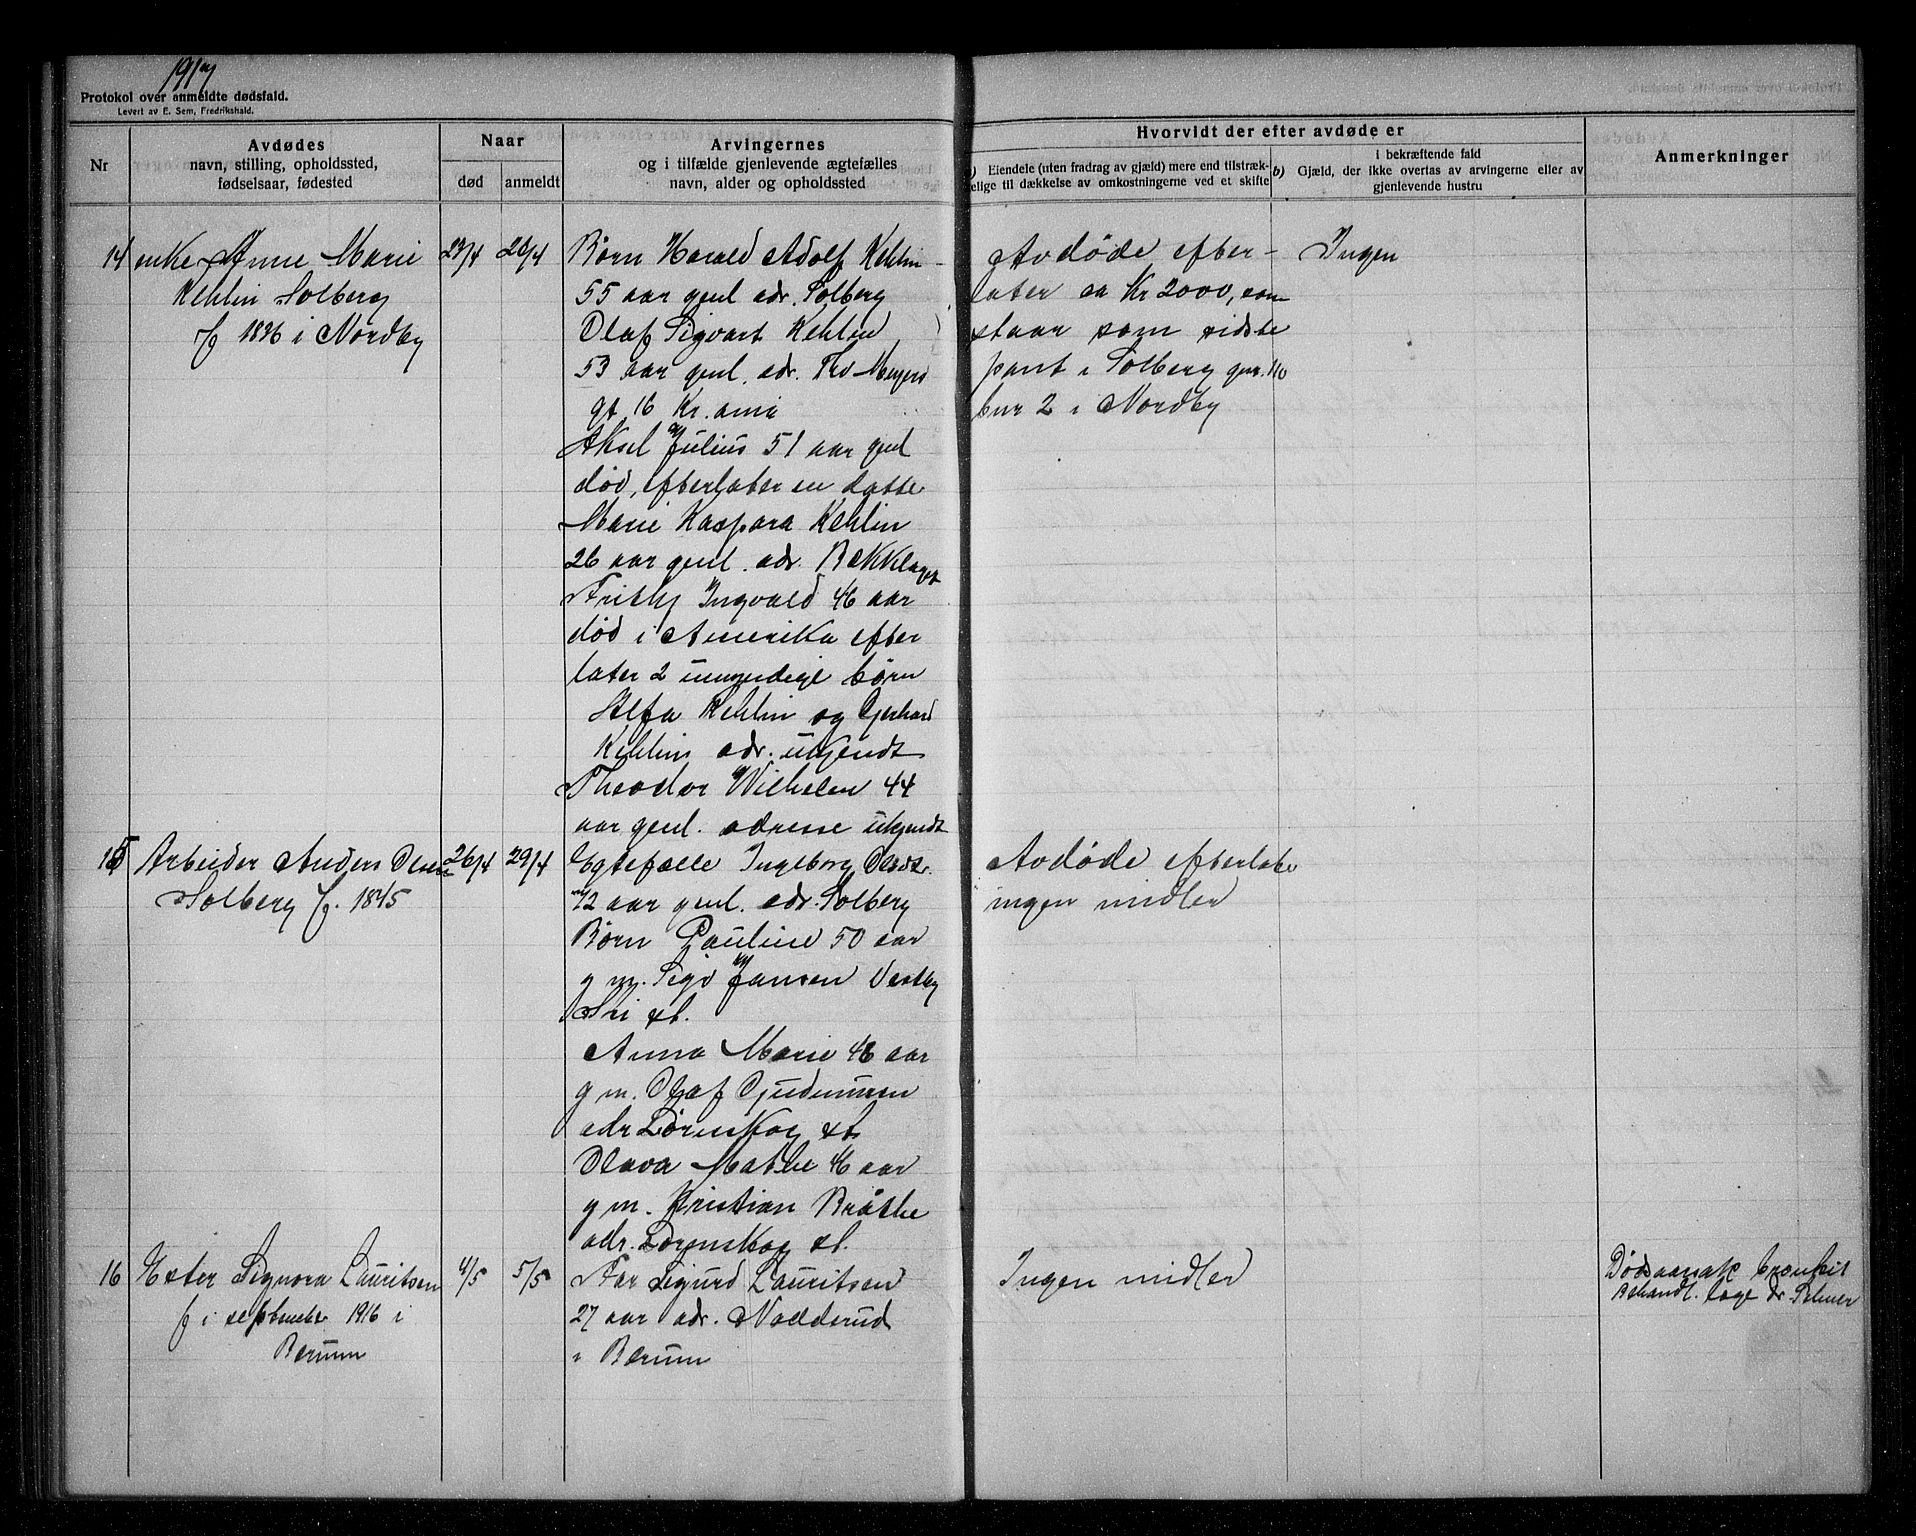 1917
Protokol over anmeldte dødsfald.
Levert av E. Sem, Fredrikshald.
Nr
Avdødes
navn, stilling, opholdssted,
fødselsaar, fødested
Naar
død
anmeldt
Arvingernes
og i tilfælde gjenlevende ægtefælles
navn, alder og opholdssted
Hvorvidt der efter avdøde er
a) Eiendele (uten fradrag av gjæld) mere end tilstræk-
kelige til dækkelse av omkostningerne ved et skifte
i bekræftende fald
b) Gjæld, der ikke overtas av arvingerne eller av
gjenlevende hustru
Anmerkninger
14 enke Anne Marie
Kehlin Solberg
f 1836 i Nordby
Børn Harald Adolf Kehlin
55 aar geul adr. Solberg
Olaf Sigvart Kehlin
53 aar geul. adr. Thv Meyers
gt 16 Kr.ania
Aksel Julius 51 aar geul
død, efterlater en datte
Marie Kaspara Kehlin
26 aar geul. adr. Bækklaget
Fritz Ingvald 46 aar
død i Amerika efter
later 2 umyndige børn
Alfa Kehlin og Gerhard
Kehlin adr. ukjendt
Theodor Wilhelm 44
aar geul. adresse ukjendt
Avdøde efter-
later ca Kr 2000, som
staar som sidste
pant i Solberg gnr. 110
bnr 2 i Nordby
Ingen
15 Arbeider Anders Olsen 26/4 29/4
Solberg f. 1845
Egtefælle Ingeborg Olsdtr.
72 aar geul. adr. Solberg
Børn Pauline 50 aar
g m. Sigv Jansen Vestby
Ski st.
Anna Marie 48 aar
g m. Olaf Gudmunsen
adr Lørenskog st
Olava Mathe 46 aar
g m. Kristian Bråthe
adr. Lørenskog st.
Avdøde efterlate
ingen midler
16 Ester Signora Lauritsen 4/5 5/5
f i september 1916 i
Bærum
Far Sigurd Lauritsen
27 aar adr. Nadderud
i Bærum
Ingen midler
Dødsaarsak bronkit
Behandl. læge dr